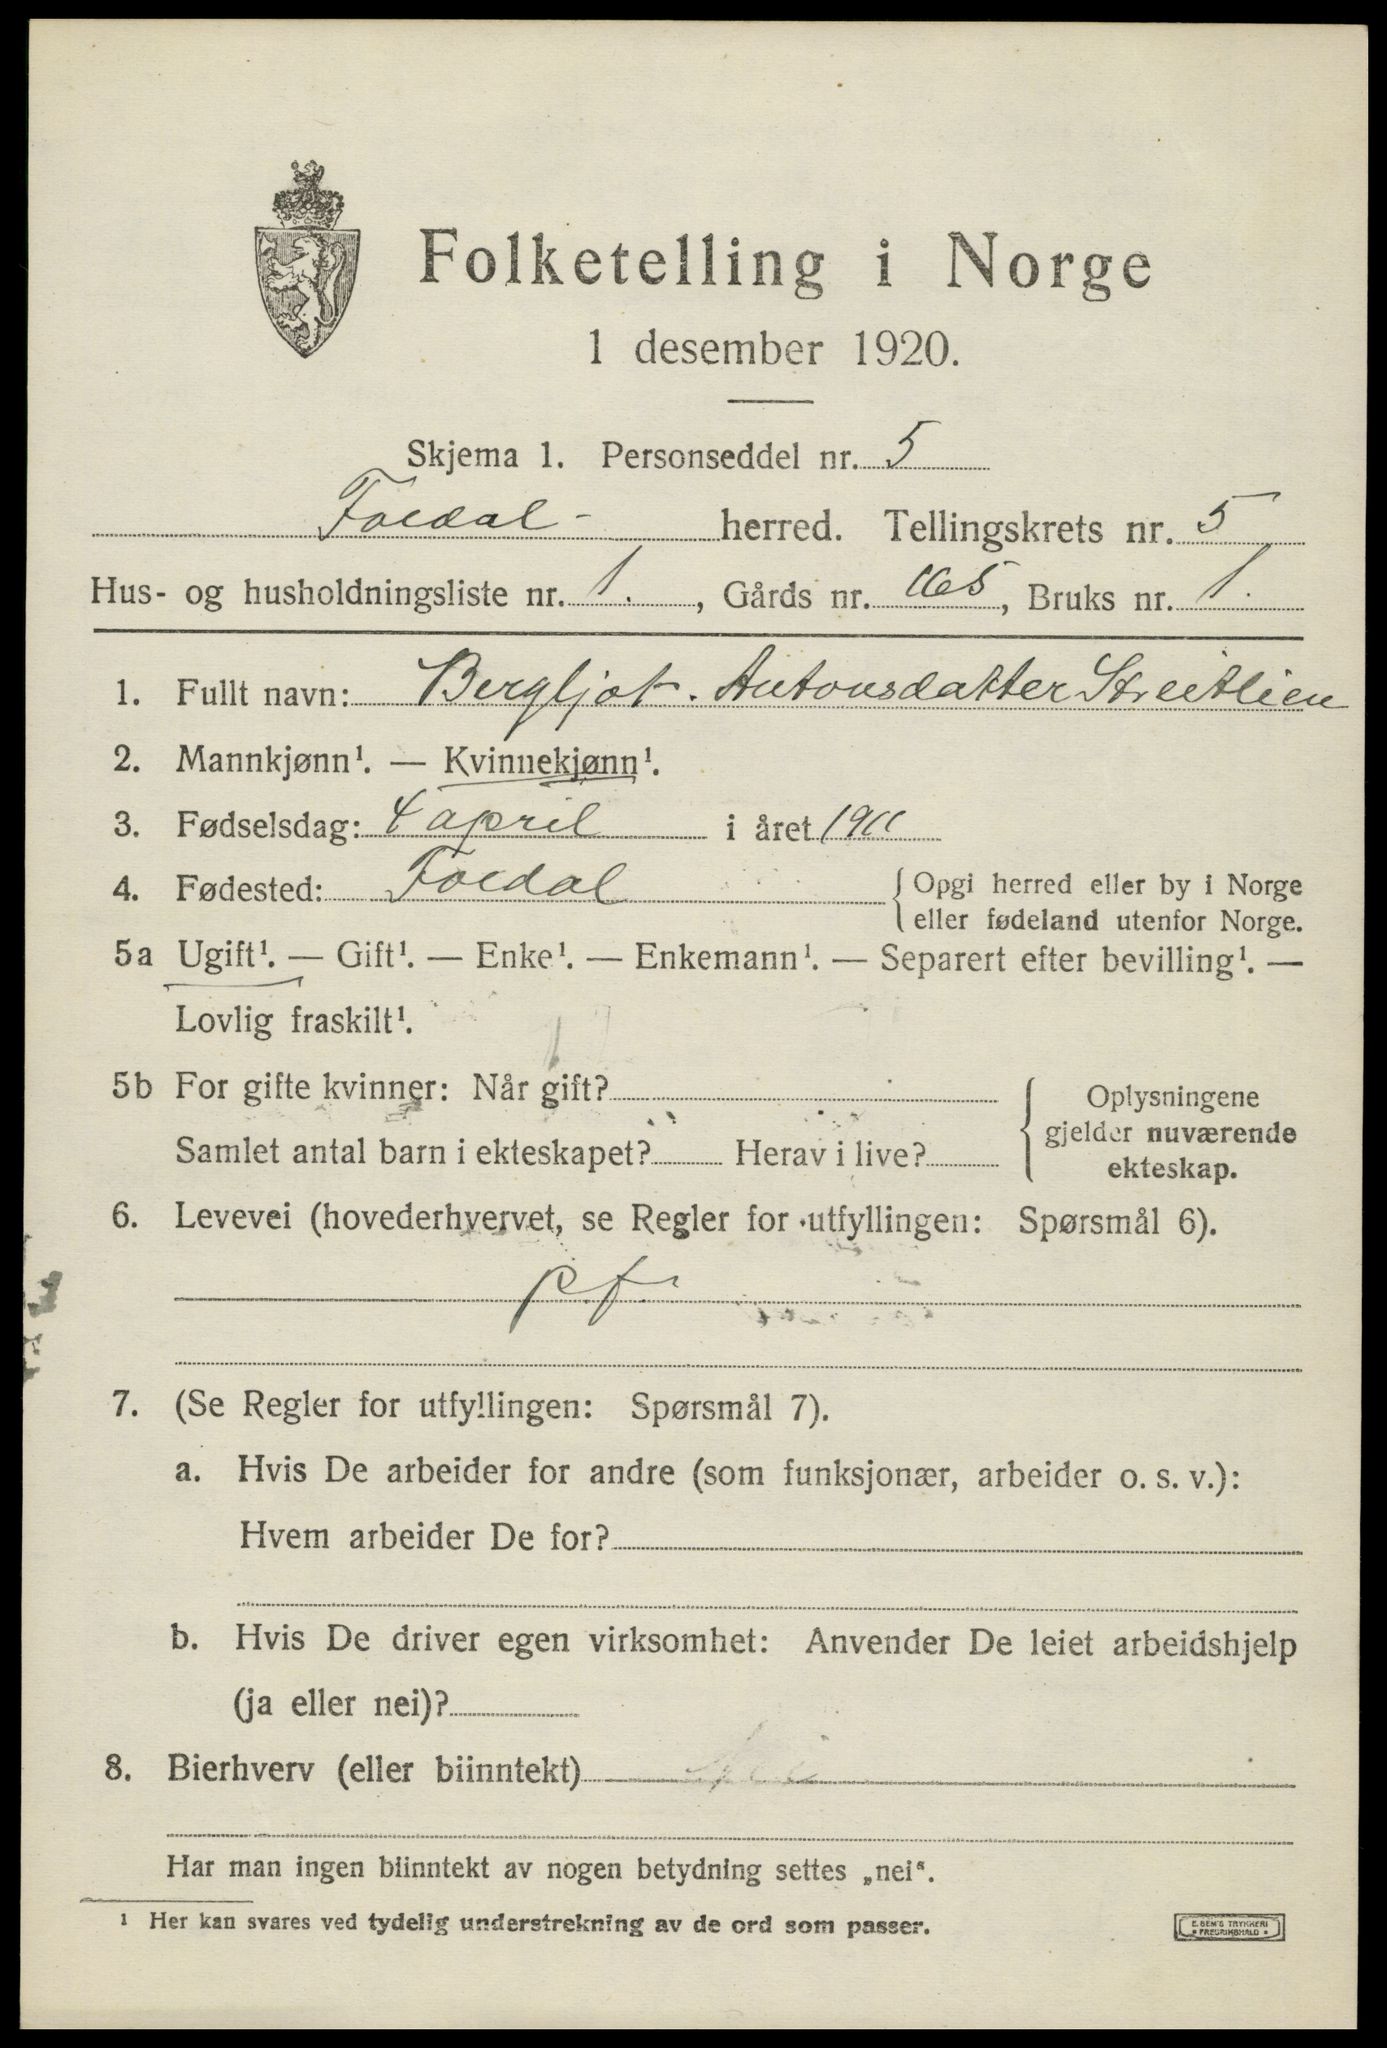 Folketelling i Norge
1 desember 1920.
Skjema 1. Personseddel nr. 5
Foldal herred. Tellingskrets nr. 5
Hus- og husholdningsliste nr. 1. , Gårds nr. 165, Bruks nr. 1.
1. Fullt navn: Bergljot. Antonsdatter Streitlien
2. Mannkjønn¹. — Kvinnekjønn¹.
3. Fødselsdag: 4 april i året 1911
4. Fødested: Foldal { Opgi herred eller by i Norge
eller fødeland utenfor Norge.
5a Ugift¹. — Gift¹. — Enke¹. — Enkemann¹. — Separert efter bevilling¹. —
Lovlig fraskilt¹.
5b For gifte kvinner: Når gift? { Oplysningene
gjelder nuværende
Samlet antal barn i ekteskapet? Herav i live?
ekteskap.
6. Levevei (hovederhvervet, se Regler for utfyllingen: Spørsmål 6).
pf.
7. (Se Regler for utfyllingen: Spørsmål 7).
a. Hvis De arbeider for andre (som funksjonær, arbeider o. s. v.):
Hvem arbeider De for?
b. Hvis De driver egen virksomhet: Anvender De leiet arbeidshjelp
(ja eller nei)?
8. Bierhverv (eller biinntekt)
Har man ingen biinntekt av nogen betydning settes „nei“.
¹ Her kan svares ved tydelig understrekning av de ord som passer.
E. SEM'S TRYKKERI
* FREDRIKSHALD *